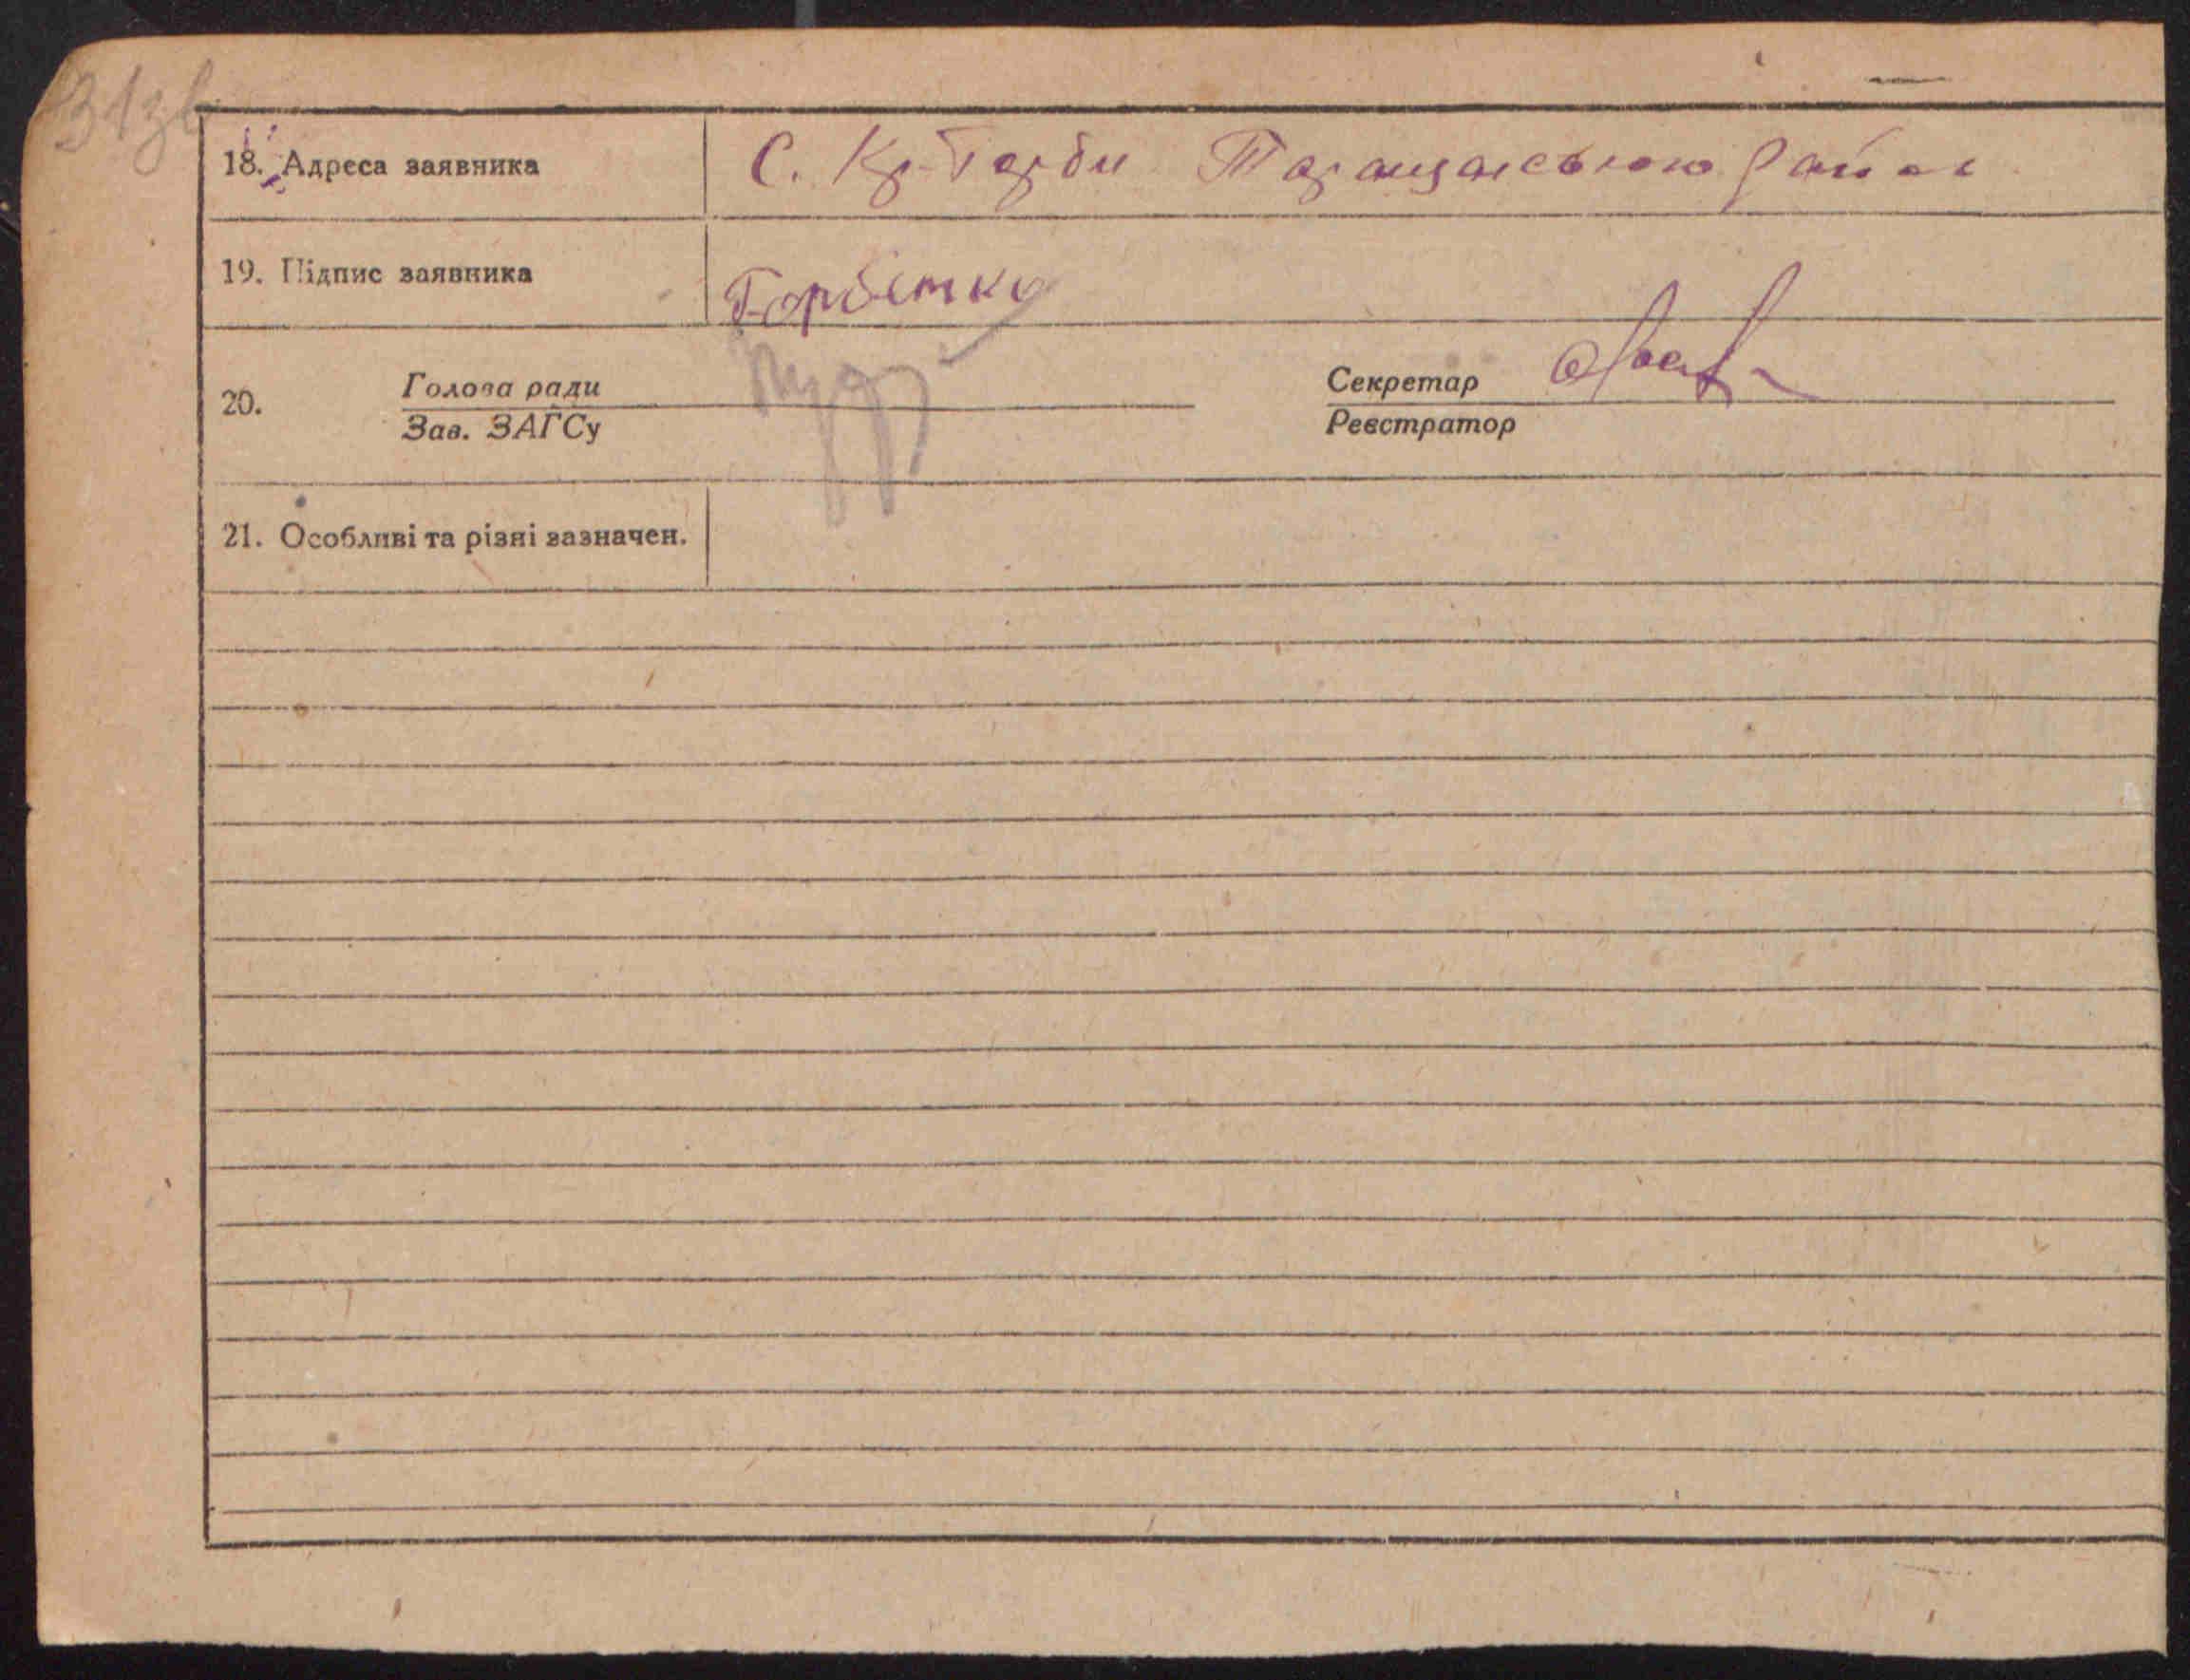 31зв
18. Адреса заявника С. Кр-Горби Таращанського район
19. Підпис заявника
20. Голова ради Секретар
Зав. ЗАГСу Реєстратор
21. Особливі та різні зазначен.